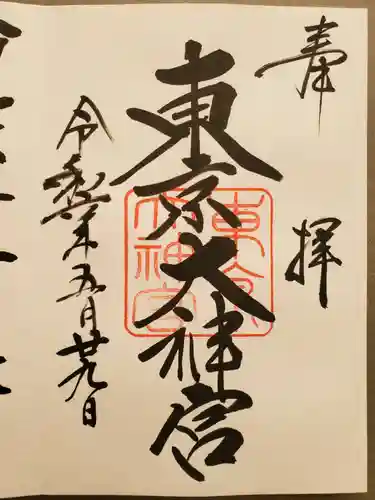 奉拝
東京大神宮
東京大神宮
令和五年五月廿九日